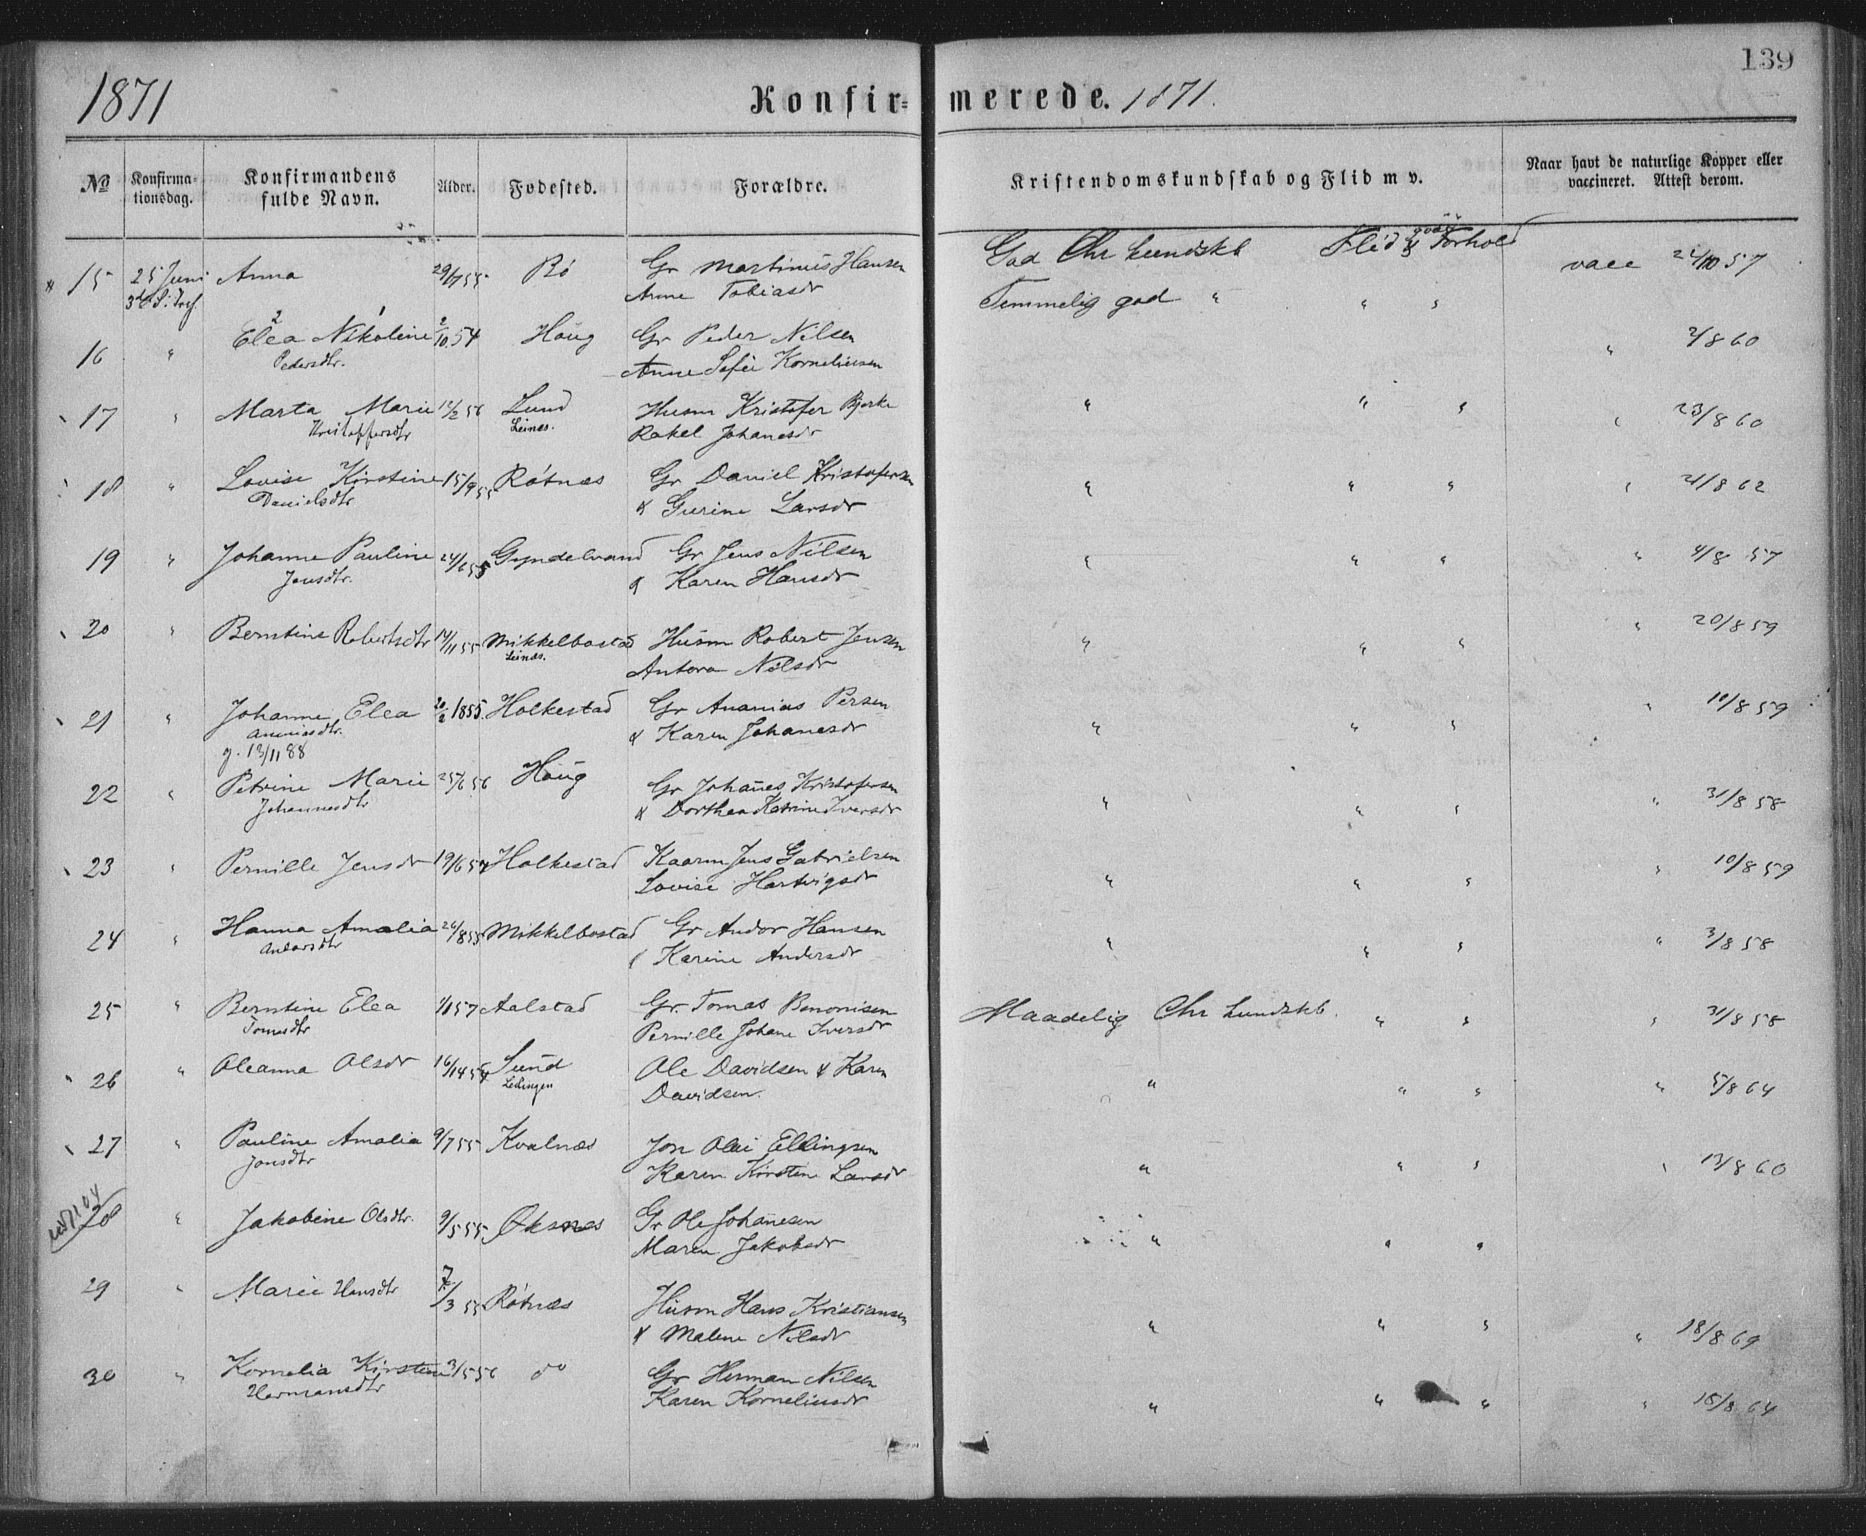 139
1871 Konfir= merede. 1871.
№ Konfirma=tionsdag. Konfirmandens fulde Navn. Alder. Fødested. Forældre. Kristendomskundskab og Flid m v. Naar havt de naturlige Kopper eller vaccineret. Attest derom.
15 25 Juni Anna 29/7 55 Bö Gr Martinus Hansen God Chr kundskb Flid & Forhold vacc 24/10 57
Anne Tobiasdr Temmelig god " " "
16 " Elea Nikoline 2/10 54 Houg Gr Peder Nilsen " 2/8 60
Pedersdtr. Anne Sofie Korneliusen
17 " Marta Marie 12/2 56 Lund Husm Kristofer Bjerke " " " " 23/8 60
Kristoffersdtr Leines. Rakel Johanesdr
18 " Lovise Kirstine 15/9 55 Rötnæs Gr Daniel Kristofersen " " " " 21/8 62
Danielsdtr & Gurine Larsdr
19 " Johanne Pauline 24/6 55 Gyndelvand Gr Jens Nilsen " " " " 4/8 57
Jensdtr. & Karen Hansdr
20 " Berntine Robertsdtr 14/11 55 Mikkelbostad Husm Robert Jensen " " " " 20/8 59
Leinæs. Antora Nilsdr
21 " Johanne Elea 20/2 1855. Holkestad Gr Ananias Persen " " " " 10/8 59
Ananiasdtr. & Karen Johanesdr
g. 13/11 88
22 " Petrine Marie 25/6 56 Houg Gr Johanes Kristofersen " " " " 31/8 58
Johannesdtr & Dorthea Katrine Iversdr
23 " Pernille Jensdr 19/6 54 Holkestad Kaarm Jens Gabrielsen " " " " 10/8 59
Lovise Hartvigsdr
24 " Hanna Amalia 26/8 55 Mikkelbostad Gr Andor Hansen " " " " 3/8 58
Andorsdtr & Karine Andersdr
25 " Berntine Elea 1/1 57 Aalstad Gr. Tomas Benonisen Maadelig Chr kundskb. " " " 31/8 58
Tomasdtr Pernille Johane Iversdr
26 " Oleanna Olsdr 16/14 54 Sund Ole Davidsen & Karen " " " " 5/8 64
Lødingen Davidsen.
27 " Pauline Amalia 9/7 55 Kvalnæs Jon Olai Ellingsen " " " " 13/8 60
Jonsdtr Karen Kirsten Larsdr
28 " Jakobine Olsdtr. 9/5 55. Øksnes Gr Ole Johanesen " " "
Maren Jakobsdr
29 " Marie Hansdtr 7/3 55 Rötnæs Husm Hans Kristiansen " " " " 18/8 69
& Malene Nilsdr
30 " Kornelia Kirstine 3/5 56 do Gr Herman Nilsen " " " " 15/8 64
Hermansdtr Karen Korneliusdr